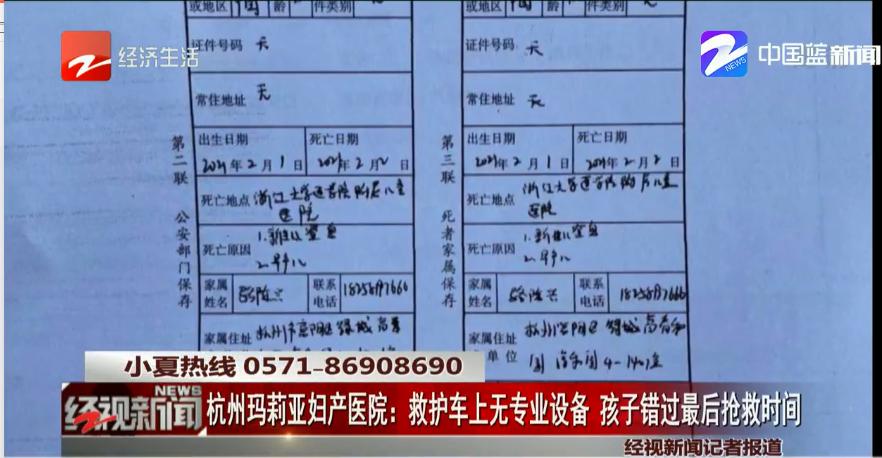 或地区
件类别
经济生活
NEWS
中国蓝新闻
证件号码 无
证件号码 无
常住地址 无
常住地址 无
第二联 公安部门保存
出生日期 死亡日期
2021年2月1日 2021年2月2日
死亡地点 浙江大学医学院附属儿童
医院
死亡原因 1.新生儿窒息
2.早产儿
家属姓名
联系电话
家属住址
第三联 死者家属保存
出生日期 死亡日期
2021年2月1日 2021年2月2日
死亡地点 浙江大学医学院附属儿童
医院
死亡原因 1.新生儿窒息
2.早产儿
家属姓名
联系电话
家属住址
单位
小夏热线 0571-86908690
NEWS
经视新闻
杭州玛莉亚妇产医院：救护车上无专业设备 孩子错过最后抢救时间
经视新闻记者报道